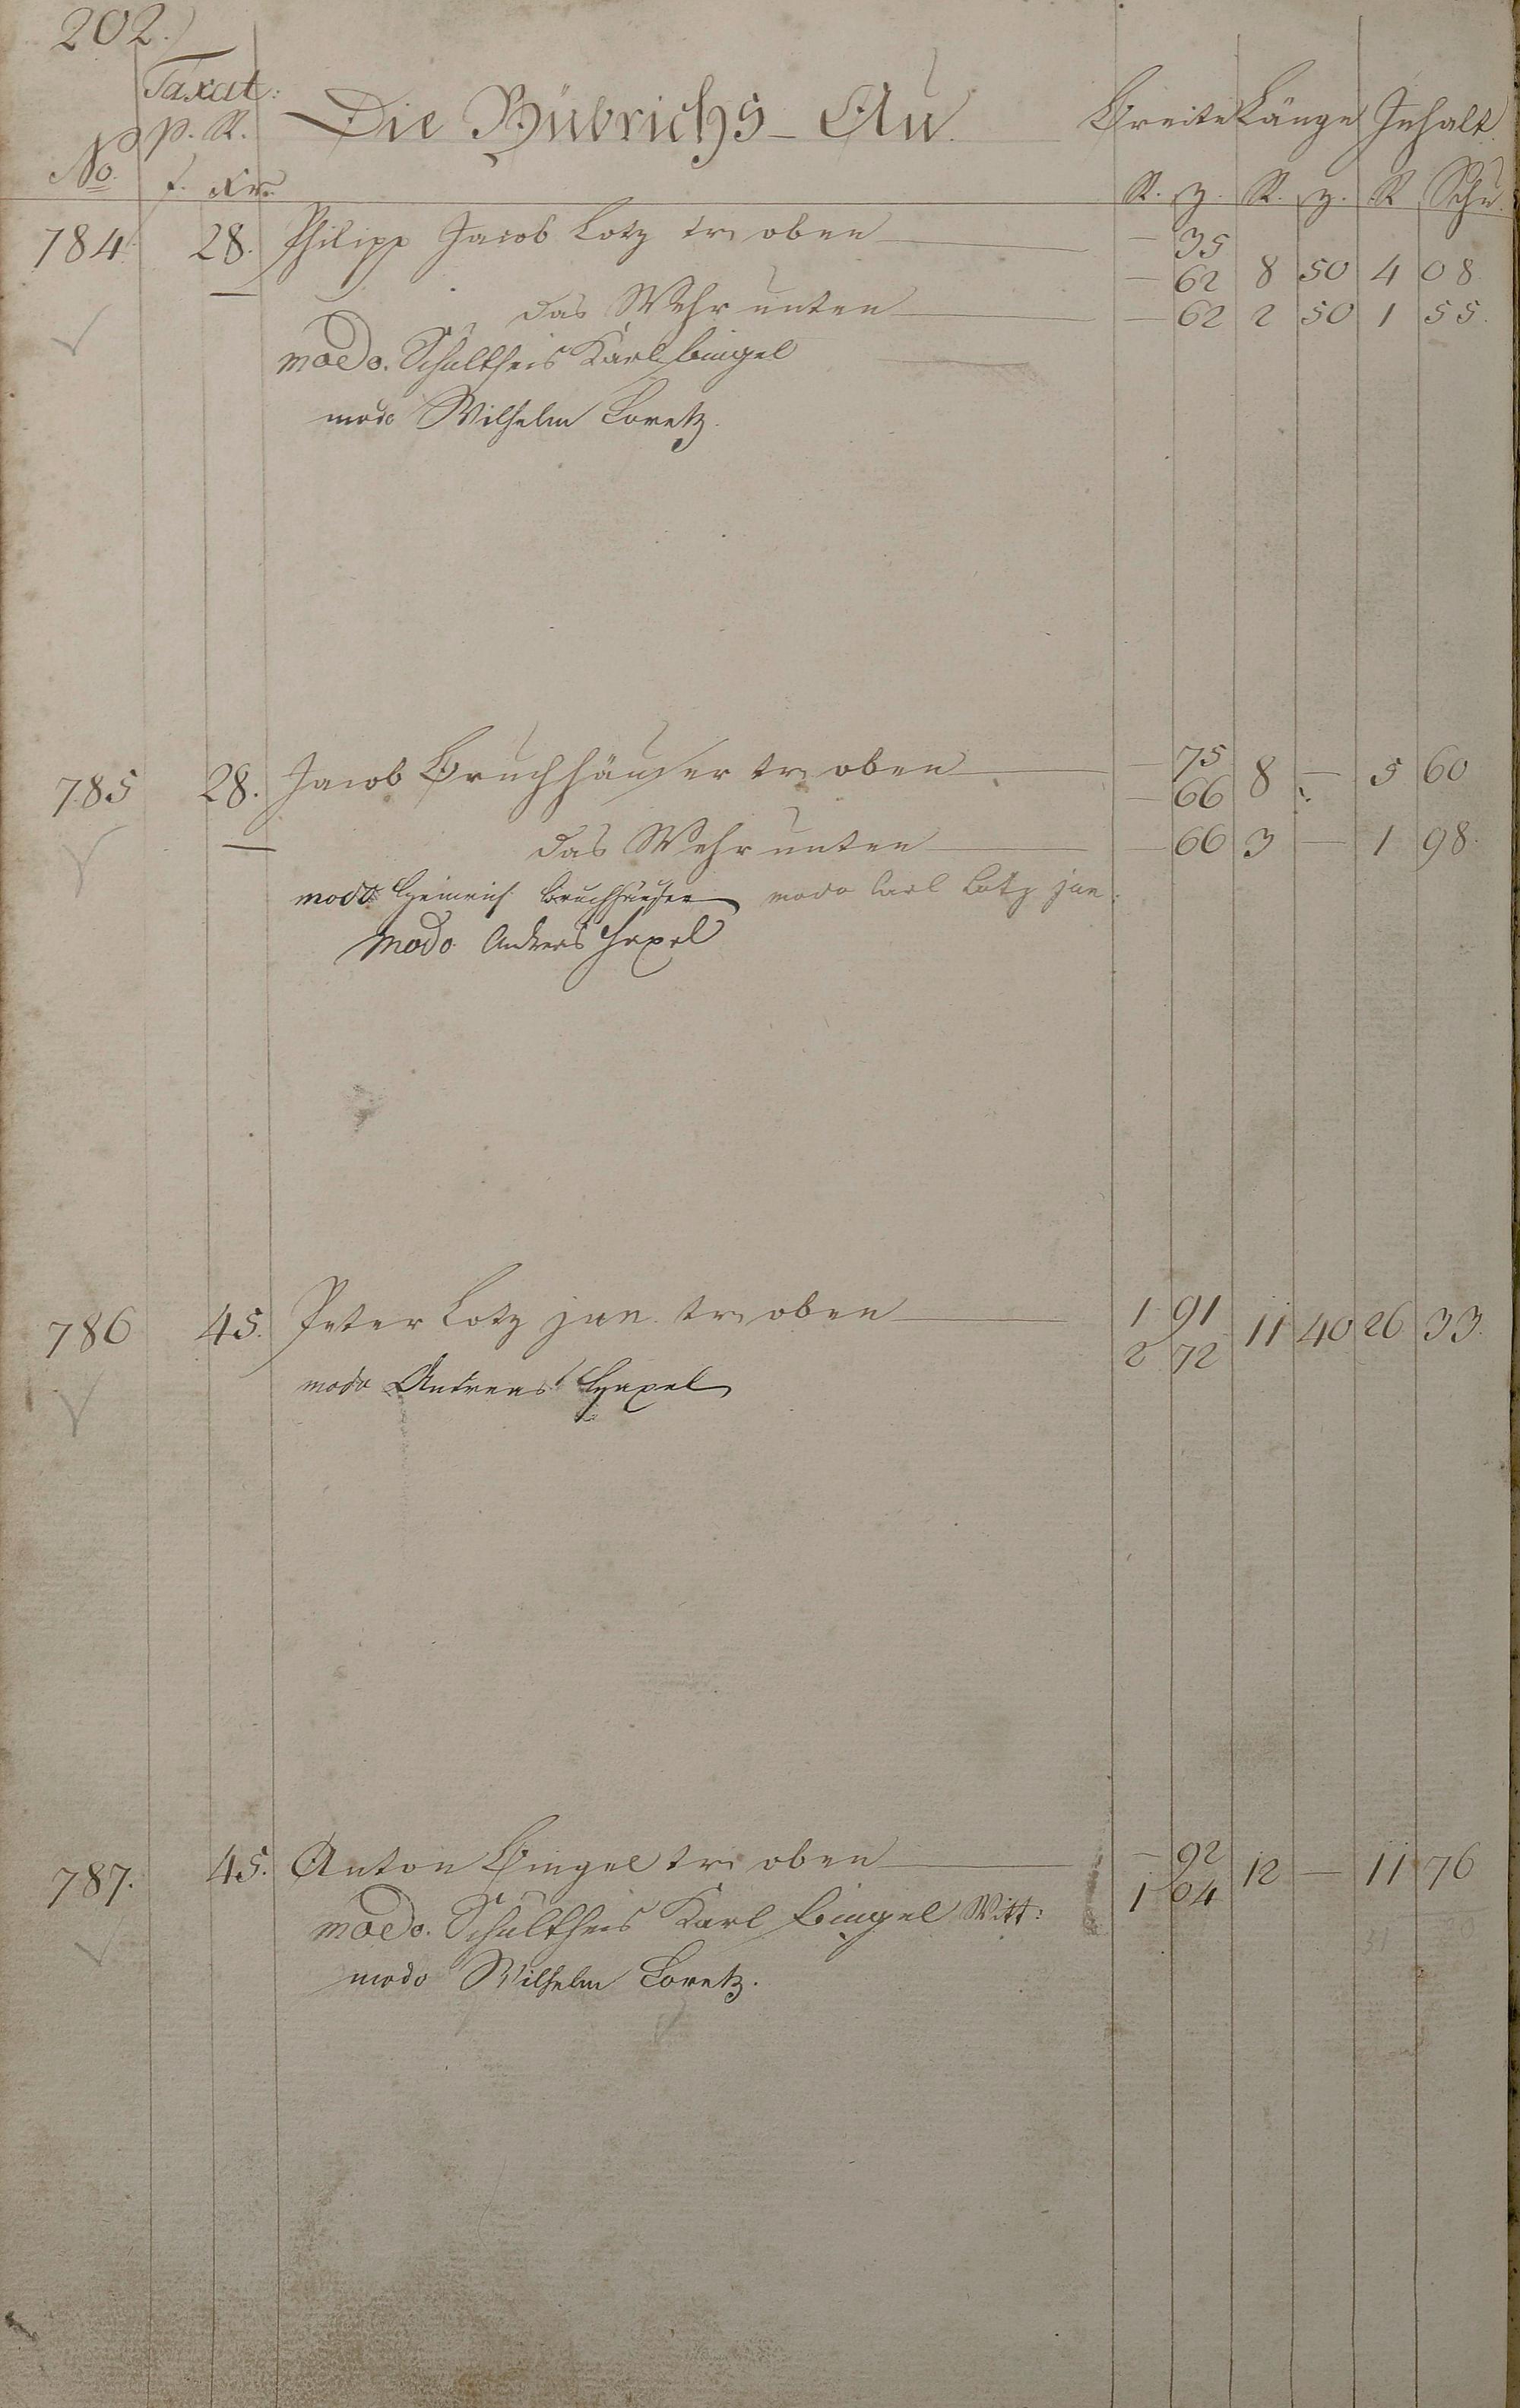 202.
Taxat:
p. R. Die Bübrichs-Au Breite Länge Inhalt
No. f. Xr. R. z. R. z. R Schu.
784. 28. Philipp Jacob Lotz tr: oben — 35
— 62 8 50 4 08.
das Wehr unten — 62 2 50 1 55.
modo. Schultheis Karl Bingel
modo Wilhelm Loretz.
785 28. Jacob Bruchhäuser tr: oben — 75
— 66 8 — 5 60
das Wehr unten — 66 3 — 1 98.
modo Heinrich Bruchhäuser modo Carl Lotz jun:
modo Andreas Hexel
786 45. Peter Lotz jun. tr: oben 1 91
2 72 11 40 26 33.
modo Andreas Hexel
787. 45. Anton Bingel tr: oben — 92
1 04 12 — 11 76
modo. Schultheis Karl Bingel Witt:
modo Wilhelm Loretz.